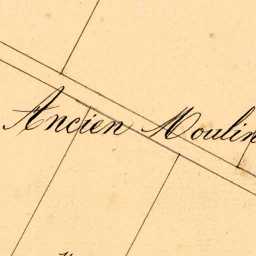 Ancien Moulin